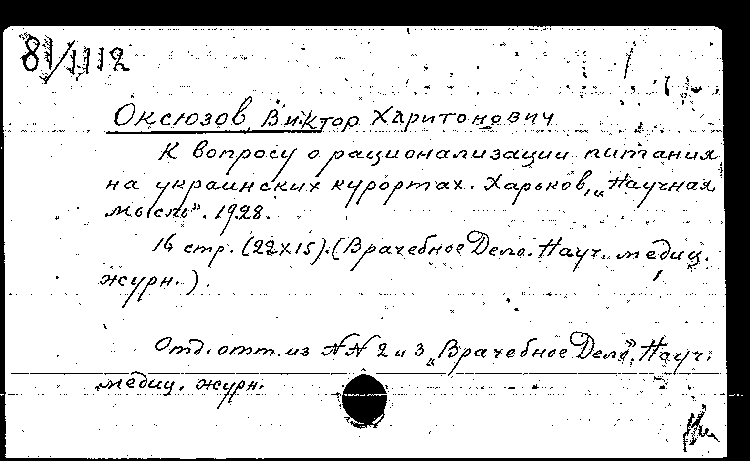 81/1112
Оксюзов, Виктор Харитонович
К вопросу о рационализации питания
на украинских курортах. Харьков, „Научная
мысль". 1928.
16 стр. (22х15). (Врачебное Дело. Науч. медиц.
журн.).
Отд. отт. из NN 2 и 3 „Врачебное Дело", Науч.
медиц. журн.